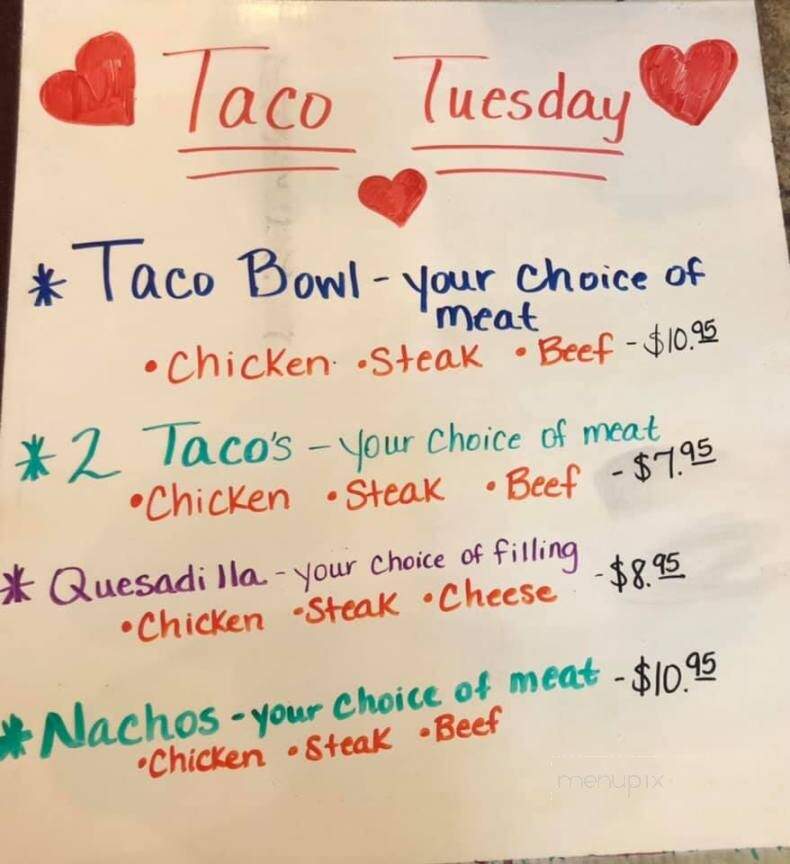 Taco Tuesday
* Taco Bowl - your choice of
meat
• Chicken • Steak • Beef - $10.95
* 2 Taco's - your choice of meat
• Chicken • Steak • Beef - $7.95
* Quesadilla - your choice of filling
• Chicken • Steak • Cheese - $8.95
* Nachos - your choice of meat - $10.95
• Chicken • Steak • Beef
menupix